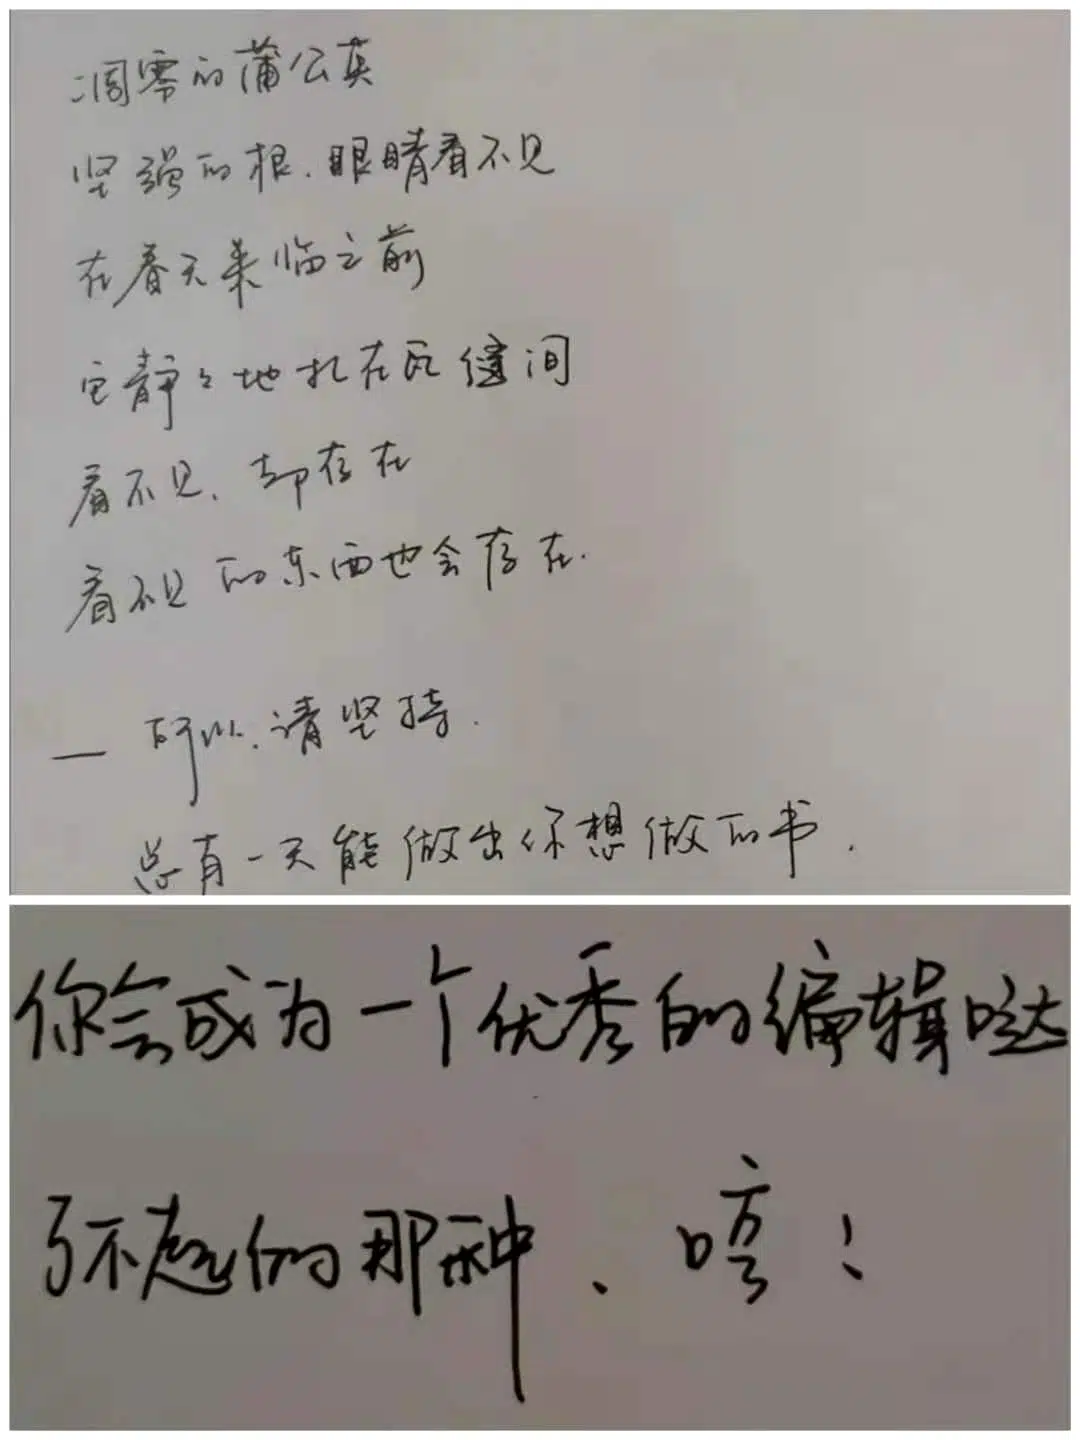 凋零的蒲公英
坚强的根、眼睛看不见
在春天来临之前
它静々地扎在瓦缝间
看不见、却存在
看不见的东西也会存在.
— 所以、请坚持.
总有一天能做出你想做的书.
你会成为一个优秀的编辑哒
了不起的那种、哼！